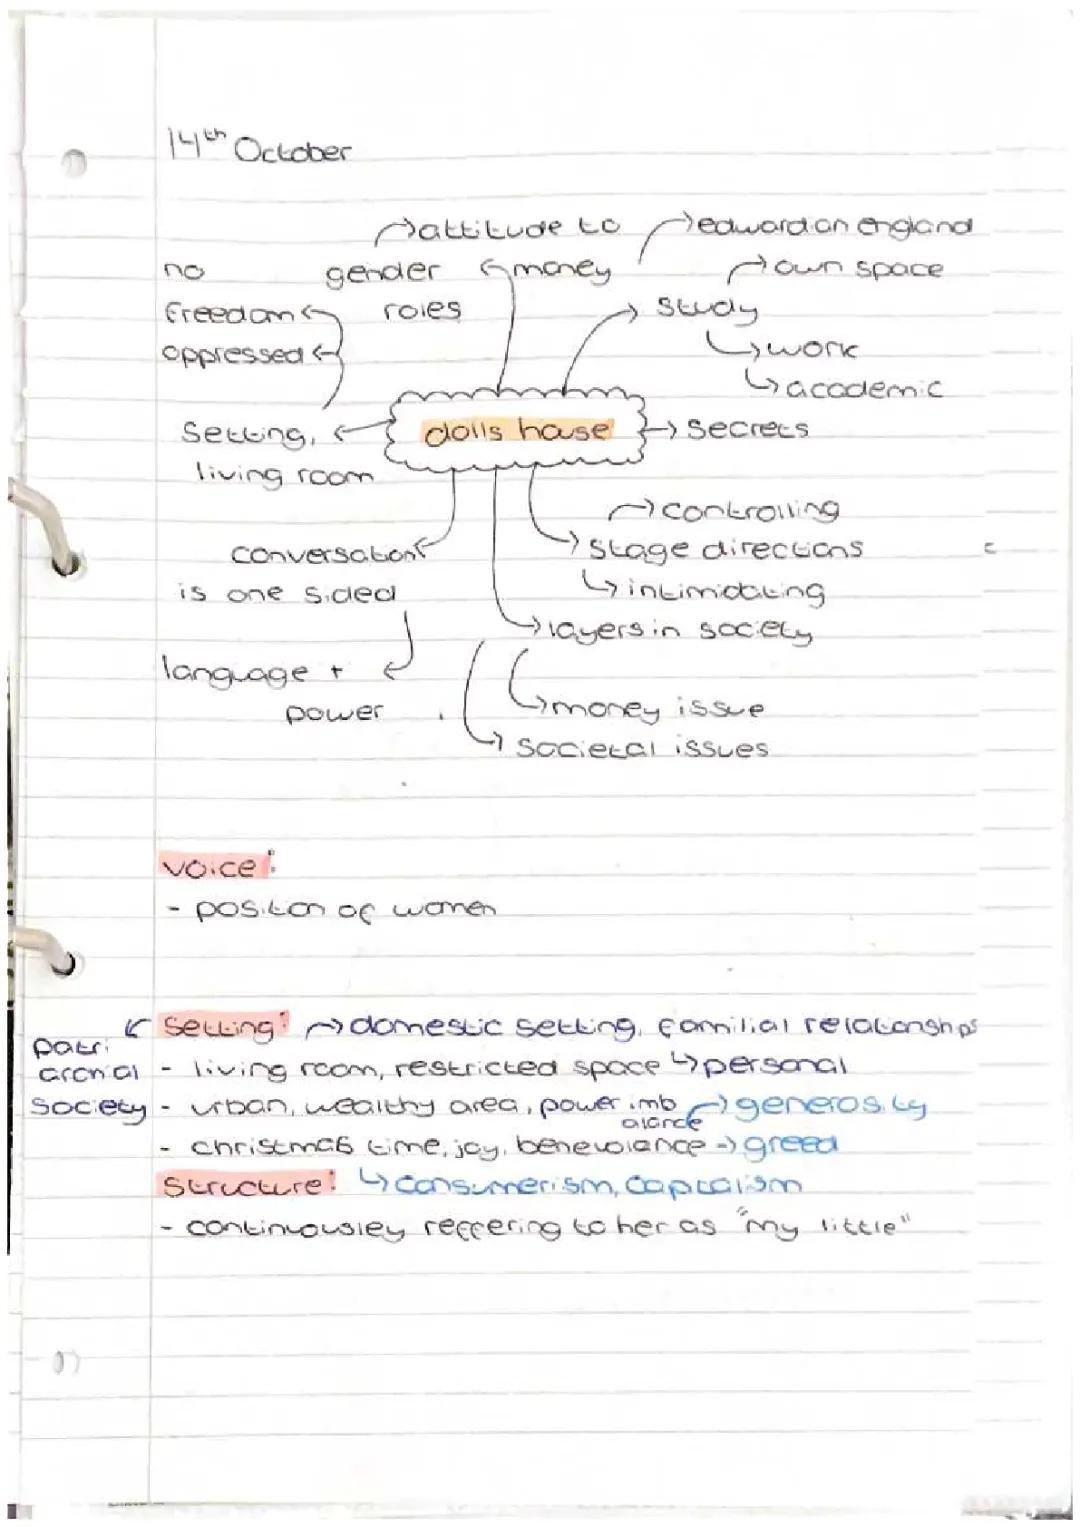 14th October
attitude to
gender
roles
money
edwardian england
own space
study
work
academic
no
freedom
oppressed
setting,
living room
dolls house
secrets
conversation
is one sided
language +
power
controlling
stage directions
intimidating
layers in society
money issue
societal issues
voice:
- position of women
setting: domestic setting, familial relationships
patri
archial
society
- living room, restricted space personal
- urban, wealthy area, power imb
alance
generosity
- christmas time, joy, benevolance → greed
structure: consumerism, capitalism
- continuousley reffering to her as "my little"